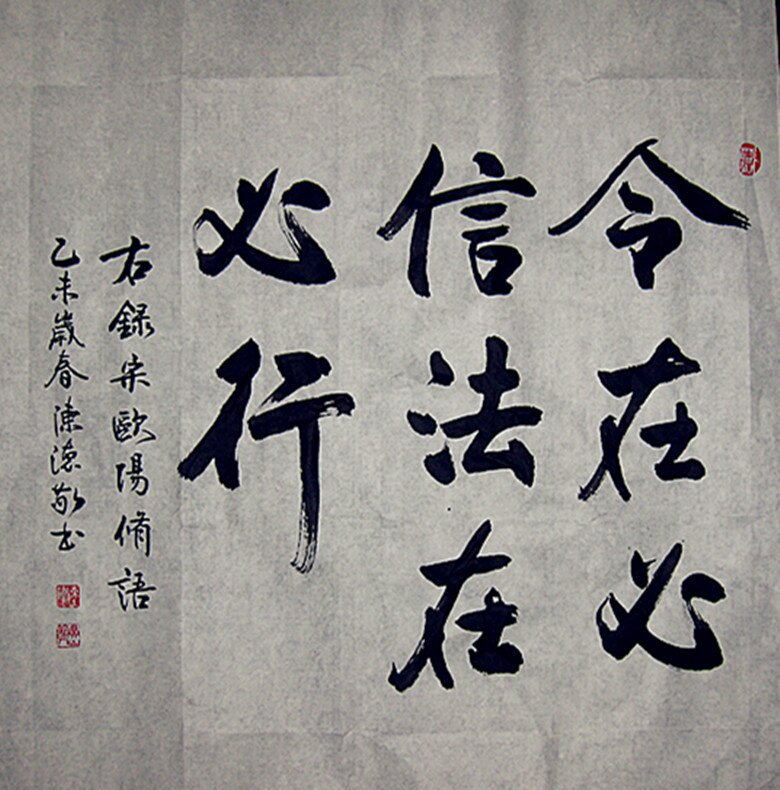 令在必
信法在
必行
右録宋歐陽脩語
乙未歲春陳德敬书